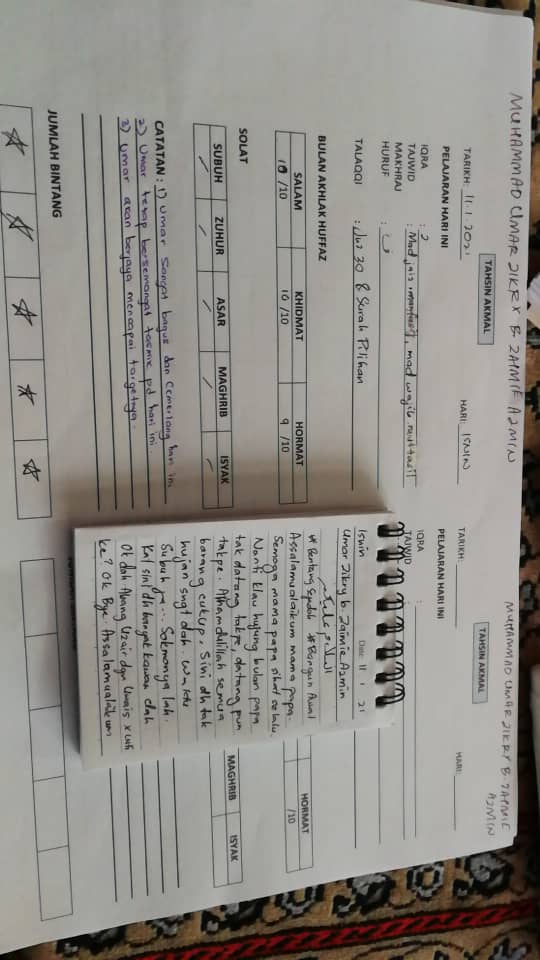 MUHAMMAD UMAR ZIKRY B. ZAIMIE AZMIN
TAHSIN AKMAL
TARIKH: 11.1.2021 HARI: ISNIN
PELAJARAN HARI INI
IQRA : 2
TAJWID : Mad jaiz munfasil, mad wajib muttasil
MAKHRAJ
HURUF : ف
TALAQQI : Juz 30 & Surah Pilihan
BULAN AKHLAK HUFFAZ
SALAM KHIDMAT HORMAT
10 /10 10 /10 9 /10
SOLAT
SUBUH ZUHUR ASAR MAGHRIB ISYAK
/ / / / /
CATATAN : 1) Umar Sangat bagus dan Cemerlang hari ini
2) Umar tetap bersemangat tasmik pd hari ini.
3) Umar akan berjaya mencapai targetnya.
JUMLAH BINTANG
MUHAMMAD UMAR ZIKRY B. ZAIMIE
AZMIN
TAHSIN AKMAL
TARIKH: HARI:
PELAJARAN HARI INI
IQRA :
TAJWID
HORMAT
/10
MAGHRIB ISYAK
Isnin Date 11 1 21
Umar Zikry b. Zaimie Azmin
السلام عليكم
# Bentang Sejadah # Bangun Awal
Assalamualaikum mama papa.
Semoga mama papa sihat selalu.
Nanti klau hujung bulan papa
tak datang takpe, datang pun
takpe. Alhamdulillah semua
barang cukup. Sini dh tak
hujan sngt dah. Waktu
Subuh ... Sokmonya lah.
Kat sini dh banyak kawan dah
Ok dah Abang Uzair dgn Umais x
ke? Ok Bye. Assalamualaikum